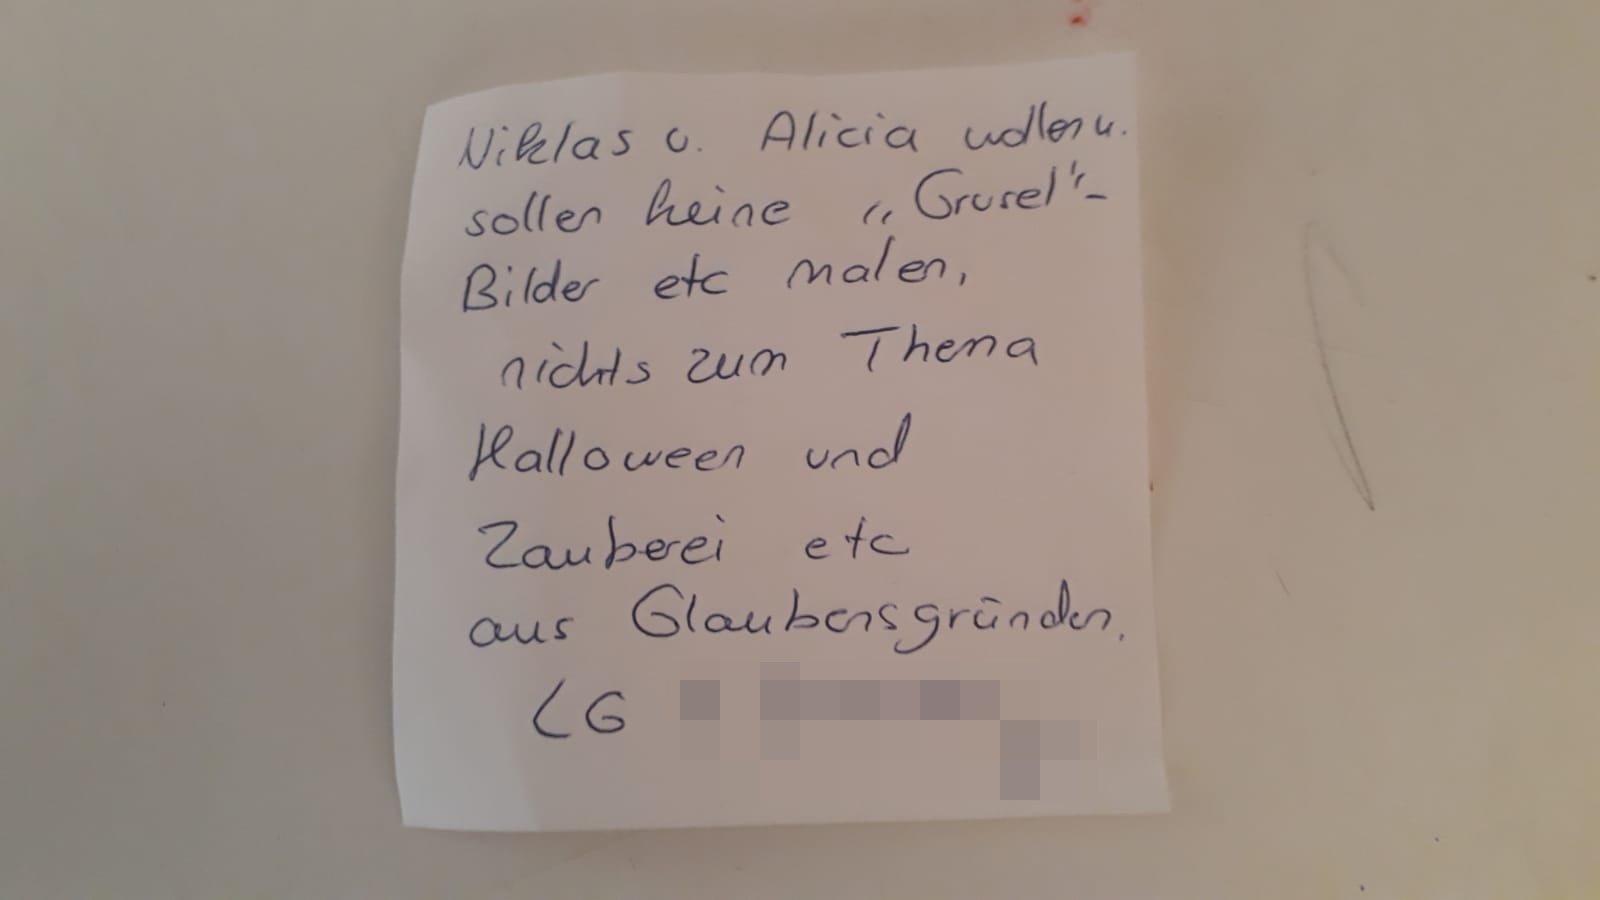 Niklas u. Alicia wollen u.
sollen keine „Grusel"-
Bilder etc malen,
nichts zum Thema
Halloween und
Zauberei etc
aus Glaubensgründen.
LG